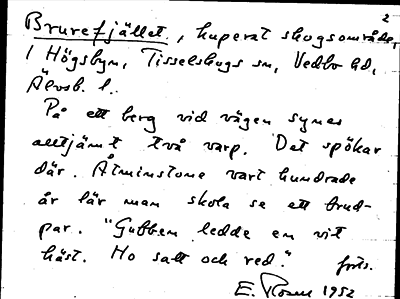 2
Brurefjället, kuperat skogsområde,
i Högsbyn, Tisselskogs sn, Vedbo hd,
Älvsb. l.
På ett berg vid vägen synes
alltjämt två varp. Det spökar
där. Åtminstone vart hundrade
år lär man skola se ett brud-
par. "Gubben ledde en vit
häst. Ho satt och red." forts.
E. 1952